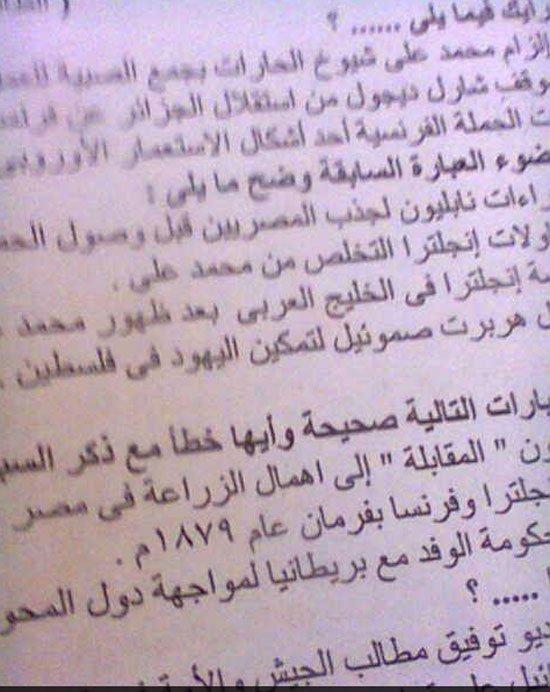 رأيك فيما يلي ...... ؟
إلزام محمد على شيوخ الحارات بجمع الصبية
موقف شارل ديجول من استقلال الجزائر عن
ت الحملة الفرنسية أحد أشكال الاستعمار الأوروبى
ضوء العبارة السابقة وضح ما يلى :
راءات نابليون لجذب المصريين قبل وصول الحم
ولات إنجلترا التخلص من محمد على .
ة إنجلترا فى الخليج العربى بعد ظهور محمد
هربرت صموئيل لتمكين اليهود فى فلسطين .
بارات التالية صحيحة وأيها خطأ مع ذكر السب
ون " المقابلة " إلى اهمال الزراعة فى مصر
نجلترا وفرنسا بفرمان عام ١٨٧٩ م .
حكومة الوفد مع بريطانيا لمواجهة دول المحو
..... ؟
ديو توفيق مطالب الجيش والأمة